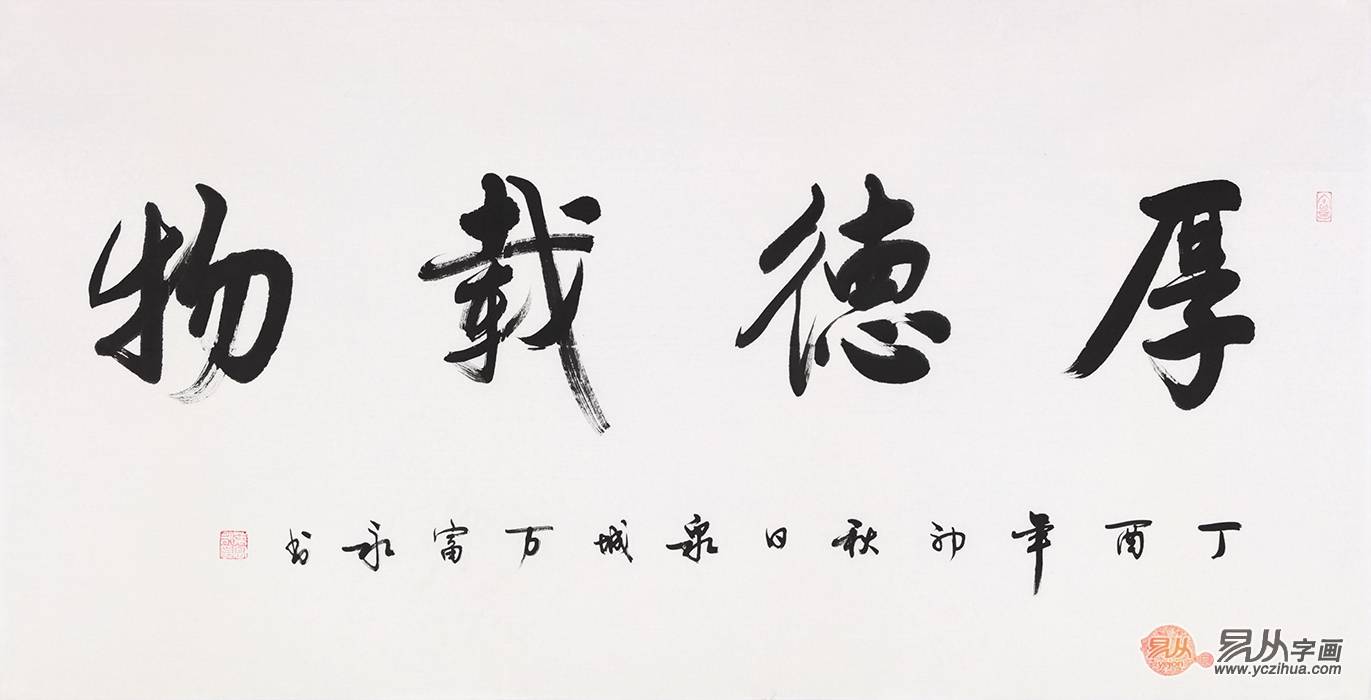 厚德载物
丁酉年初秋日泉城万富永书
易从字画
www.yczihua.com